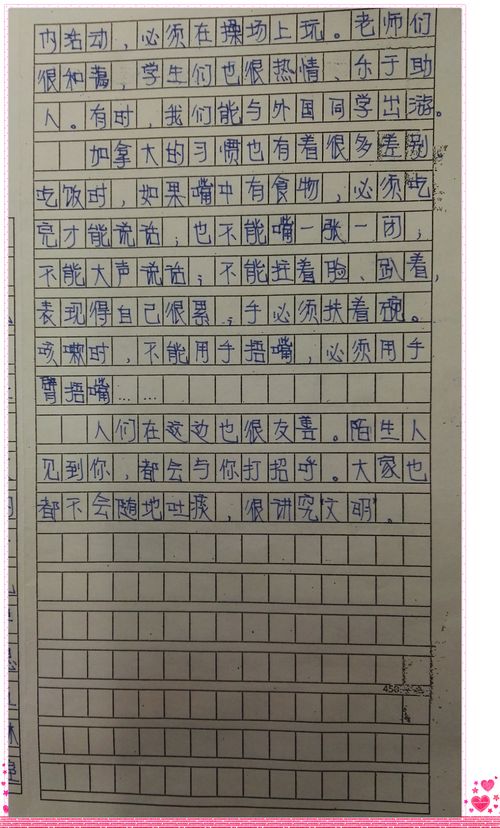 内活动，必须在操场上玩。老师们
很和蔼，学生们也很热情、乐于助
人。有时，我们能与外国同学出游。
加拿大的习惯也有着很多差别
吃饭时，如果嘴中有食物，必须吃
完才能说话；也不能嘴一张一闭；
不能大声说话；不能拄着胸、趴着，
表现得自己很累；手必须扶着碗。
咳嗽时，不能用手捂嘴，必须用手
臂捂嘴……
人们在这边也很友善。陌生人
见到你，都会与你打招呼。大家也
都不会随地吐痰，很讲究“文明”。
450